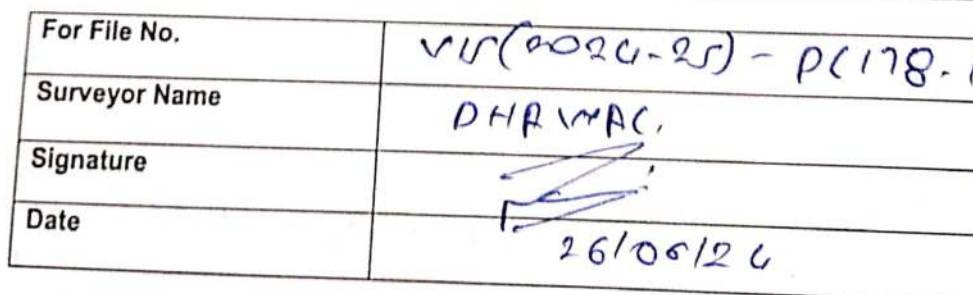 For File No. VIS(2024-25) - PC178-
Surveyor Name DHAWAL.
Signature
Date 26/06/24